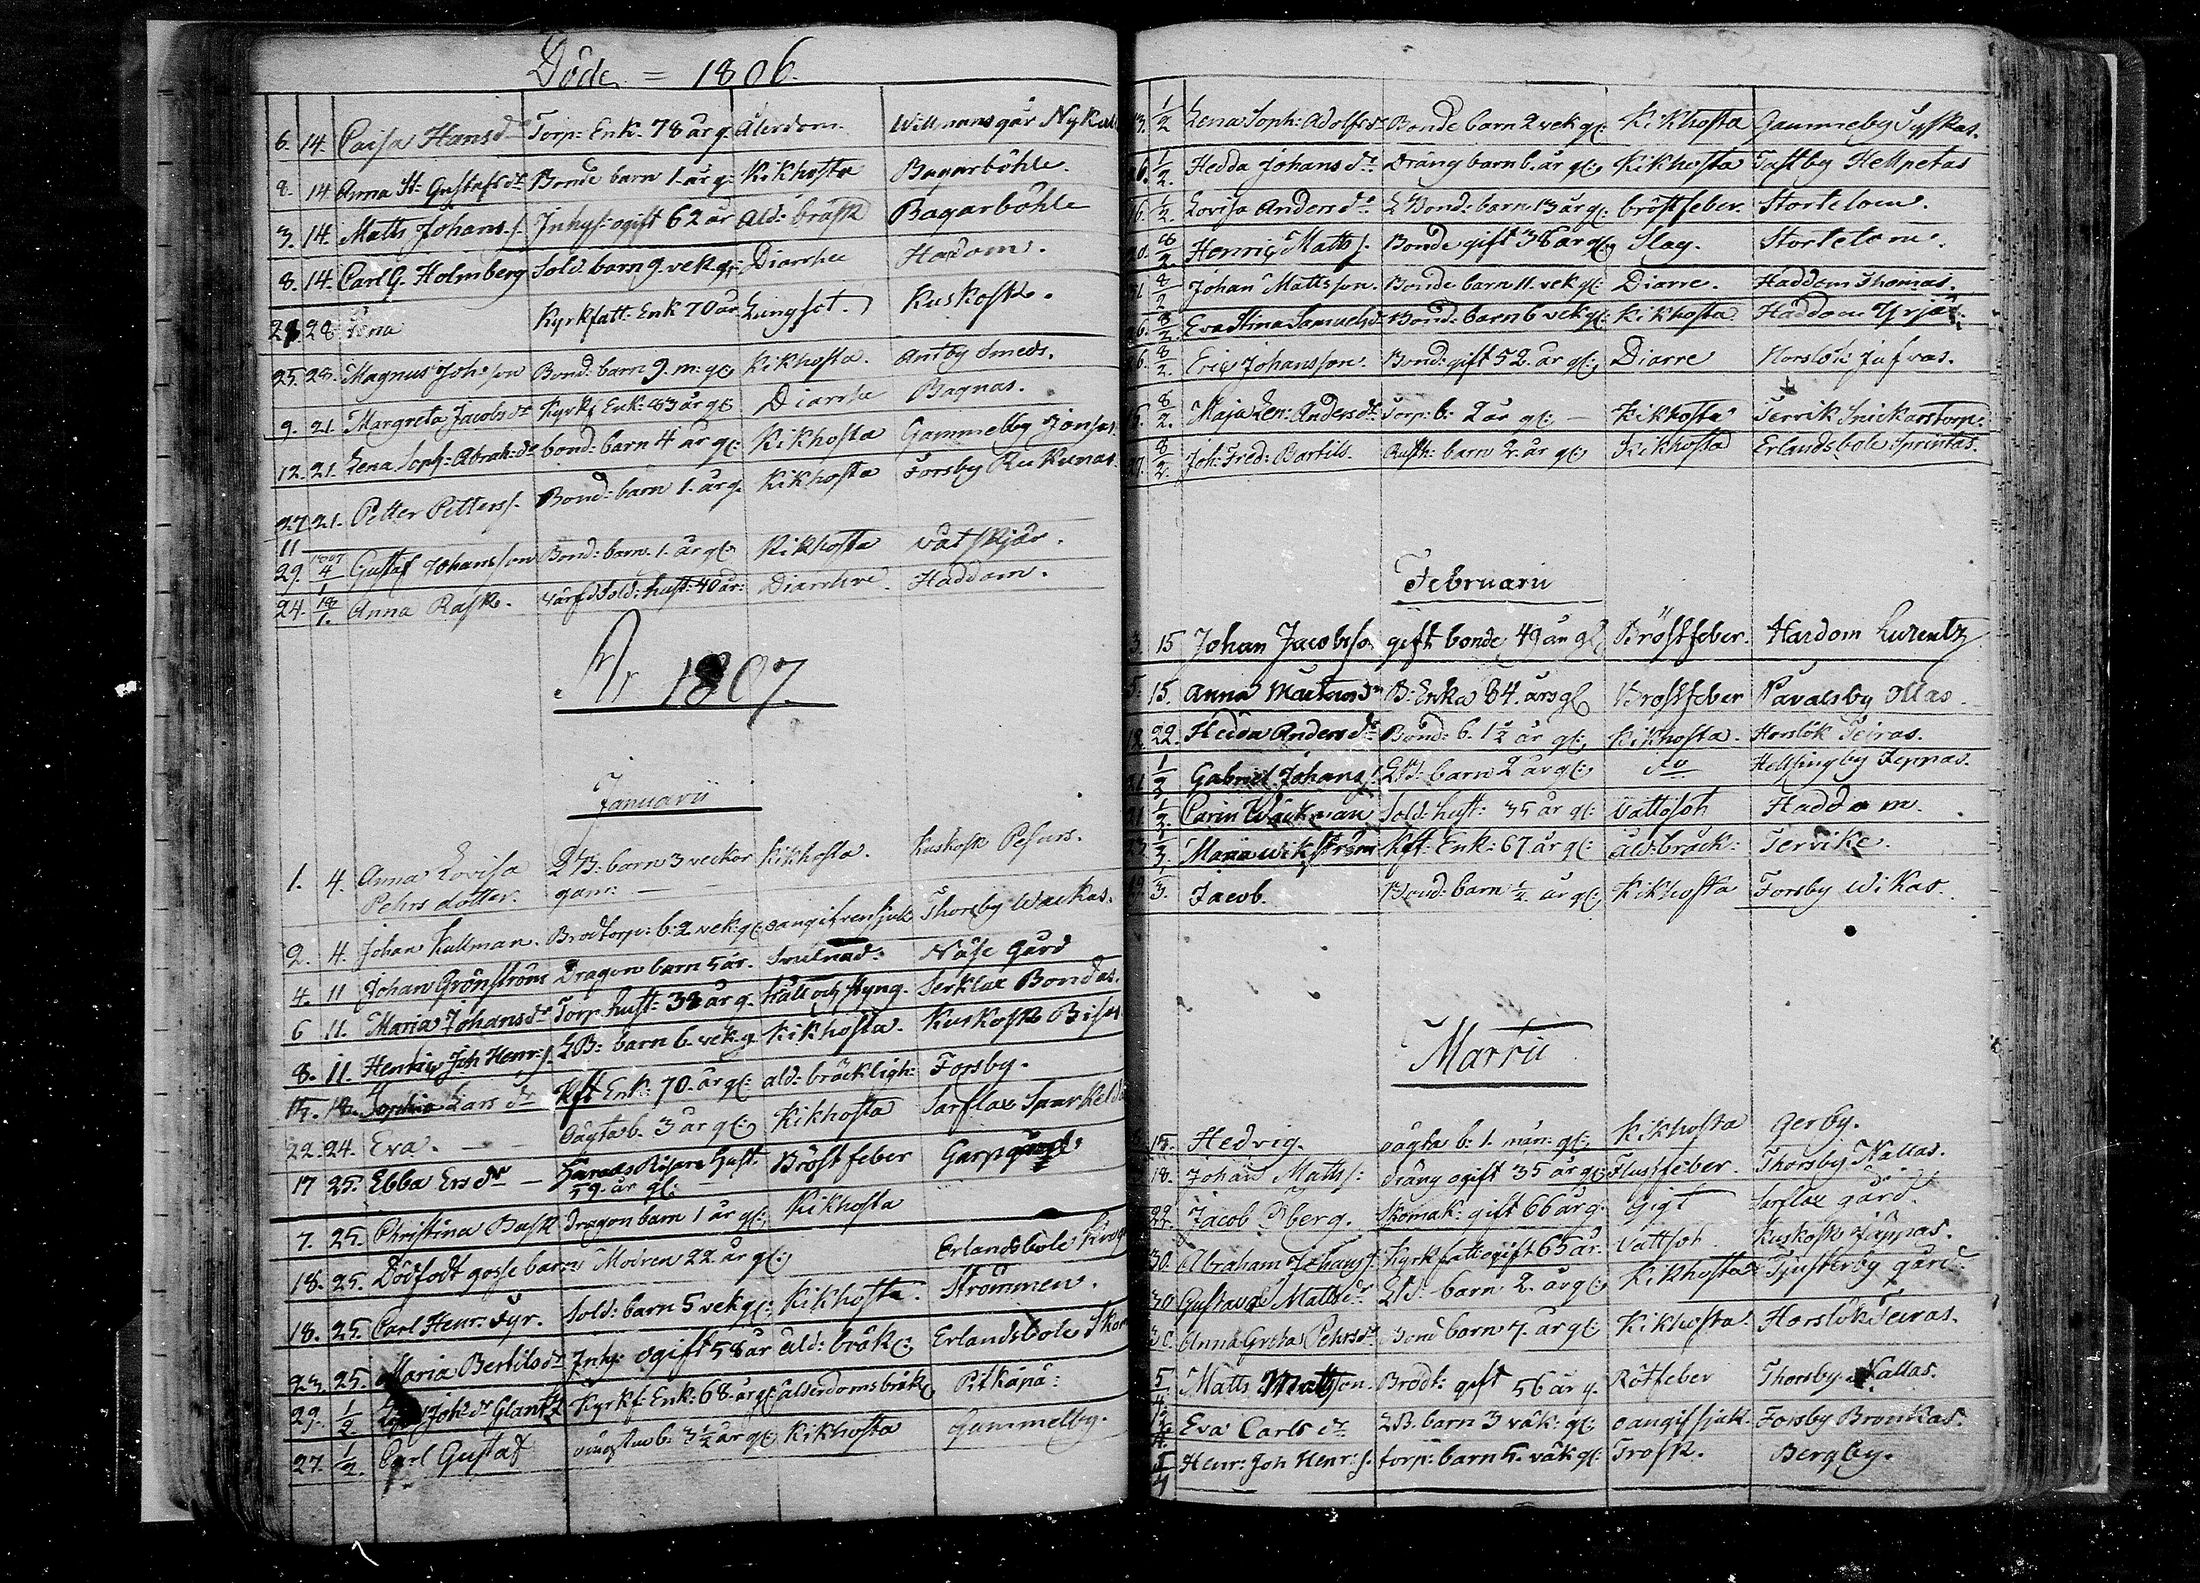 Döde = 1806.
6. 14. Caisa Hansdr Torp: Enk. 78 år g. Ålerdom. Willmansgår Nykull
8. 14. Anna H: Gustafsdr Bonde barn 1. år g: Kikhosta Bagarböhle.
3. 14. Matts Johans s. Inhys: ogift 62 år Ald: bräsk Bagarböhle
8. 14. Carl G. Holmberg Sold. barn 9. vek g: Diarrhee Hardom.
28. Lena Kyrkfatt: Enk 70 år Lungsot. Kuskosk.
25. 28. Magnus Joh:son Bond: barn 9. m: gl Kikhosta. Antby Smeds.
9. 21. Margreta Jacobsdr Kyrkf Enk: 83 år gl: Diarrhe Bagnas.
12. 21. Lena Soph: Abrah:dr bond: barn 4 år gl: Kikhosta Gammelby Jonsas
27. 21. Petter Petterss. Bond: barn 1. år g. Kikhosta Forsby Kukunas
11
29. 1807 4/1 Gustaf Johansson Bond: barn. 1. år gl: Kikhosta våtskjär.
24. 18/1. Anna Rask. värfd Sold: hust: 40 år: Diarrhee Haddom.
År 1807.
Januarii
1. 4. Anna Lovisa LB: barn 3 veckor Kikhosta. Kuskosk Pesurs.
Pehrs dotter. gam: —
2. 4. Johan Kullman. Brodtorp: b: 2 vek: gl: oangifven sjuk Thorsby Wackas.
4. 11 Johan Grönström Dragon barn 5 år. Svulnad: Näse Gård
6 11. Maria Johansdr Torp hust: 38 år g. håll och styng. Serklax Bondas.
8. 11. Henric Joh Henr: s. LB: barn 6. vek: g. Kikhosta. Kuskosk Bisas
14. 18. Sophia Lars dr Kft Enk: 70. år gl: ald: bräckligh: Forsby.
22. 24. Eva. — oägta b. 3 år gl: Kikhosta Sarflax Sparkelda
17 25. Ebba Ersdr — Härads Risare Hust. Bröst feber Garpgård
59. år gl:
7. 25. Christina Bask Dragon barn 1 år gl: Kikhosta
18. 25. Dödfödt gosse barn Modren 22 år gl: Erlandsbole Krog
18. 25. Carl Henr: Fyr. Sold: barn 5 vek gl: Kikhosta. Strömmen.
23. 25. Maria Bertilsdr Inhy: ogift 58 år ald: bräk: Erlandsbole Skom
29. 1/2. Joh:dr Glantz Kyrkf: Enk: 68. år gl: ålderdomsbräk Pitkäpä:
27. 1/2. Carl Gustaf oäugta b: 3 1/2 år gl: Kikhosta Gammelby.
1/2 Lena Soph: Adolfsdr Bonde barn 2 vek gl: Kikhosta Gammelby Tyskas.
1/2. Hedda Johans dr. Dräng barn 6. år gl: Kikhosta Tastby Hellpetas
1/2. Lovisa Anders dr LBond: barn. 13 år gl: bröstfeber. Stortelom.
8/2 Henric Matts s. Bonde gift 38 år gl: Slag. Stortelom.
8/2 Johan Mattsson. Bonde barn 11. vek gl: Diarre. Haddom Thomas.
8/2. Eva Stina Samuelsdr Bond: barn 6 vek gl: Kikhosta Haddom Yrjas.
8/2. Eric Johansson. Bond: gift 52. år gl: Diarre Horslök Jufvas.
8/2. Maja Len: Andersdr Torp: b: 2 år gl: Kikhosta Tervik Snickarstorp:
8/2. Joh: Fred: Bartils. Rusth: barn 2. år gl: Kikhosta Erlandsbole Sprintas.
Februarii
3. 15 Johan Jacobsson gift bonde 49 år gl Bröstfeber. Hardom Lurentz
5. 15. Anna Mårtensdr B: Enka 84. års gl Bröstfeber Pavalsby Ollas.
18. 22. Hedda Anders dr Bond: b. 1 1/2 år gl: Kikhosta. Horslök Teiras.
1/3 Gabriel Johans s. LB: barn 2 år gl: do Hellsingby Jeppas.
1/3. Carin Wäckman Sold: hust: 35 år gl: Vattsoth Haddom.
1/3. Maria Wikström Kft: Enk: 67 år gl: åld: bräck: Tervike.
3. Jacob. Bond: barn 1/2 år gl: Kikhosta Forsby Wikas.
Martii
18. Hedvig. oägta b: 1. mån: gl: Kikhosta Gerby.
18. Johan Matts s: dräng ogift 35 år gl: Flussfeber. Thorsby Nallas.
22. Jacob Öberg. Skomak: gift 66 år g. Gigt Sarflax gård.
30. Abraham Johans s. Kyrkfatt: ogift 65 år. Vattsot Kuskosk Jäppas.
30 Gustava Mattsdr LB: barn 2. år gl: Kikhosta Tjusterby gård
30. Anna Greta Pehrsdr Bond barn 7. år gl: Kikhosta. Horslök Teiras.
5/4 Matts Mattson. Brodt: gift 56 år g. Rötfeber Thorsby Nallas.
Eva Carls dr LB. barn 3 väk: gl: oangif sjuk. Forsby Bronkas.
5/4 Henr: Joh Henr: s. torp: barn 5. väk gl: Trosk. Bergby.